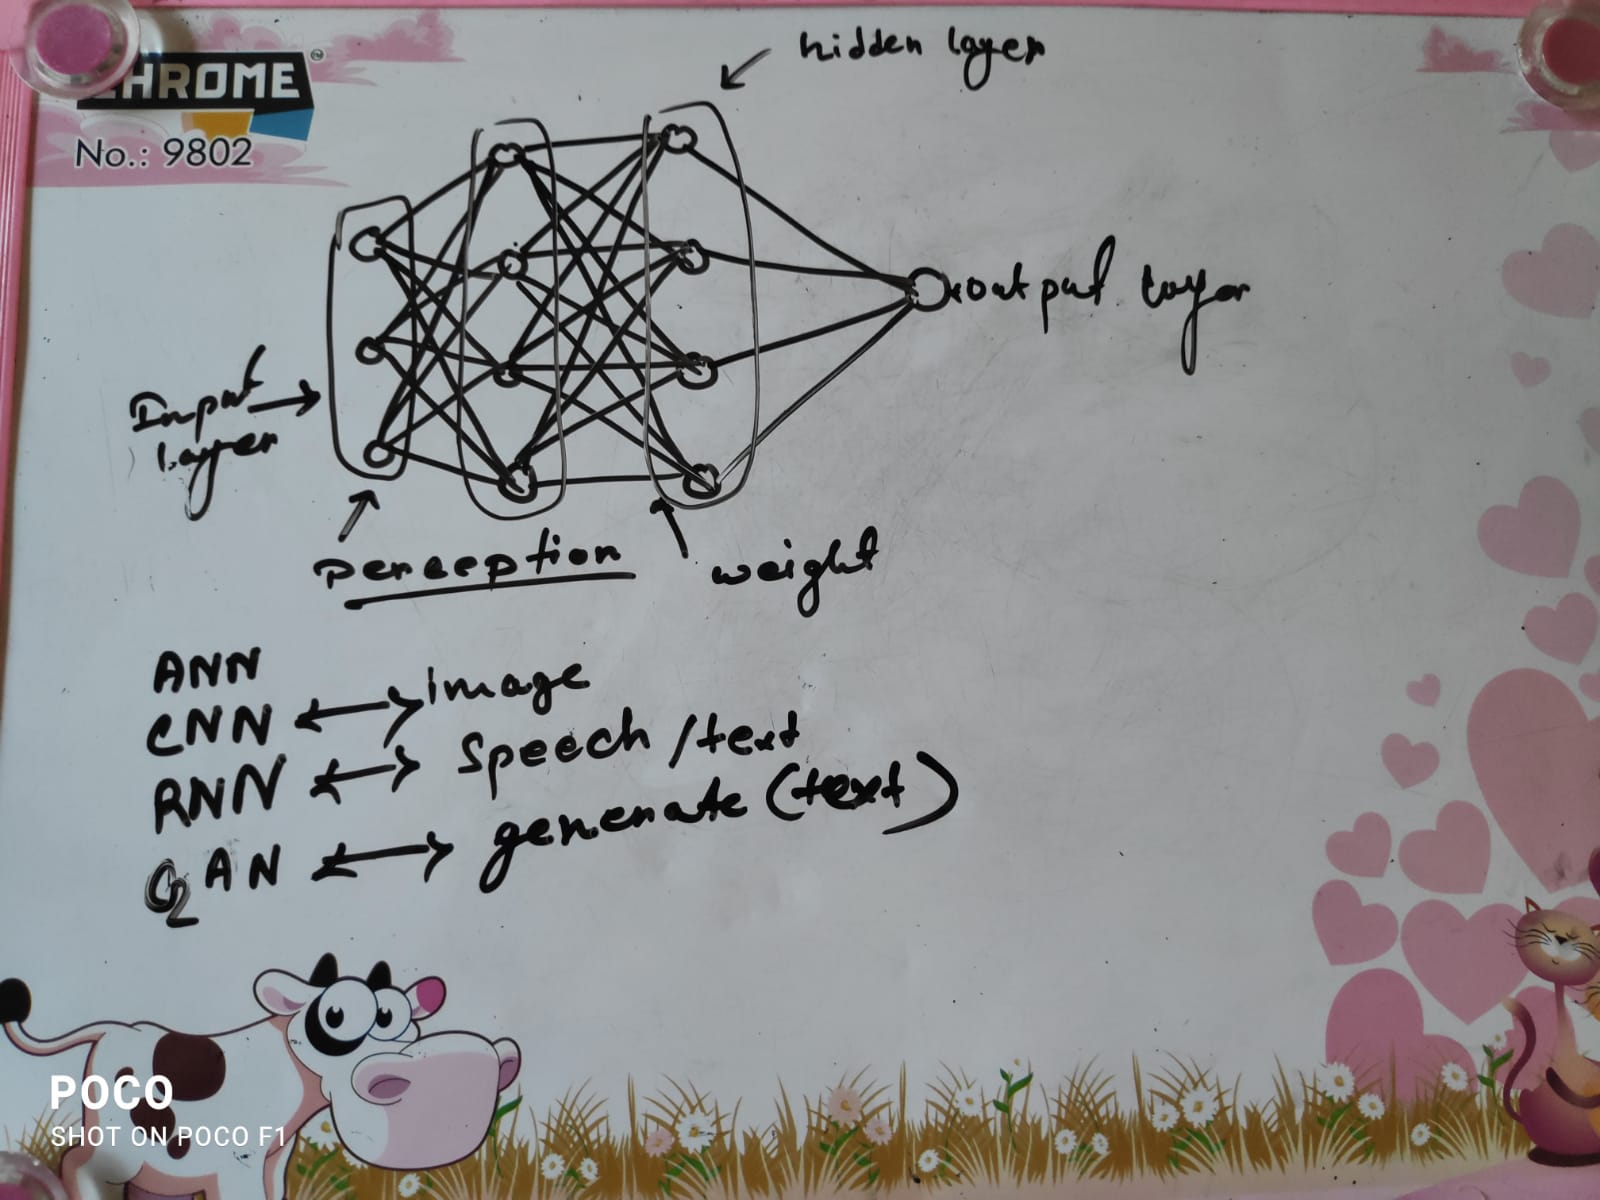 CHROME
™
No.: 9802
hidden layer
output layer
Input
layer
perception
weight
ANN
CNN ↔ image
RNN ↔ speech/text
GAN ↔ generate (text)
POCO
SHOT ON POCO F1